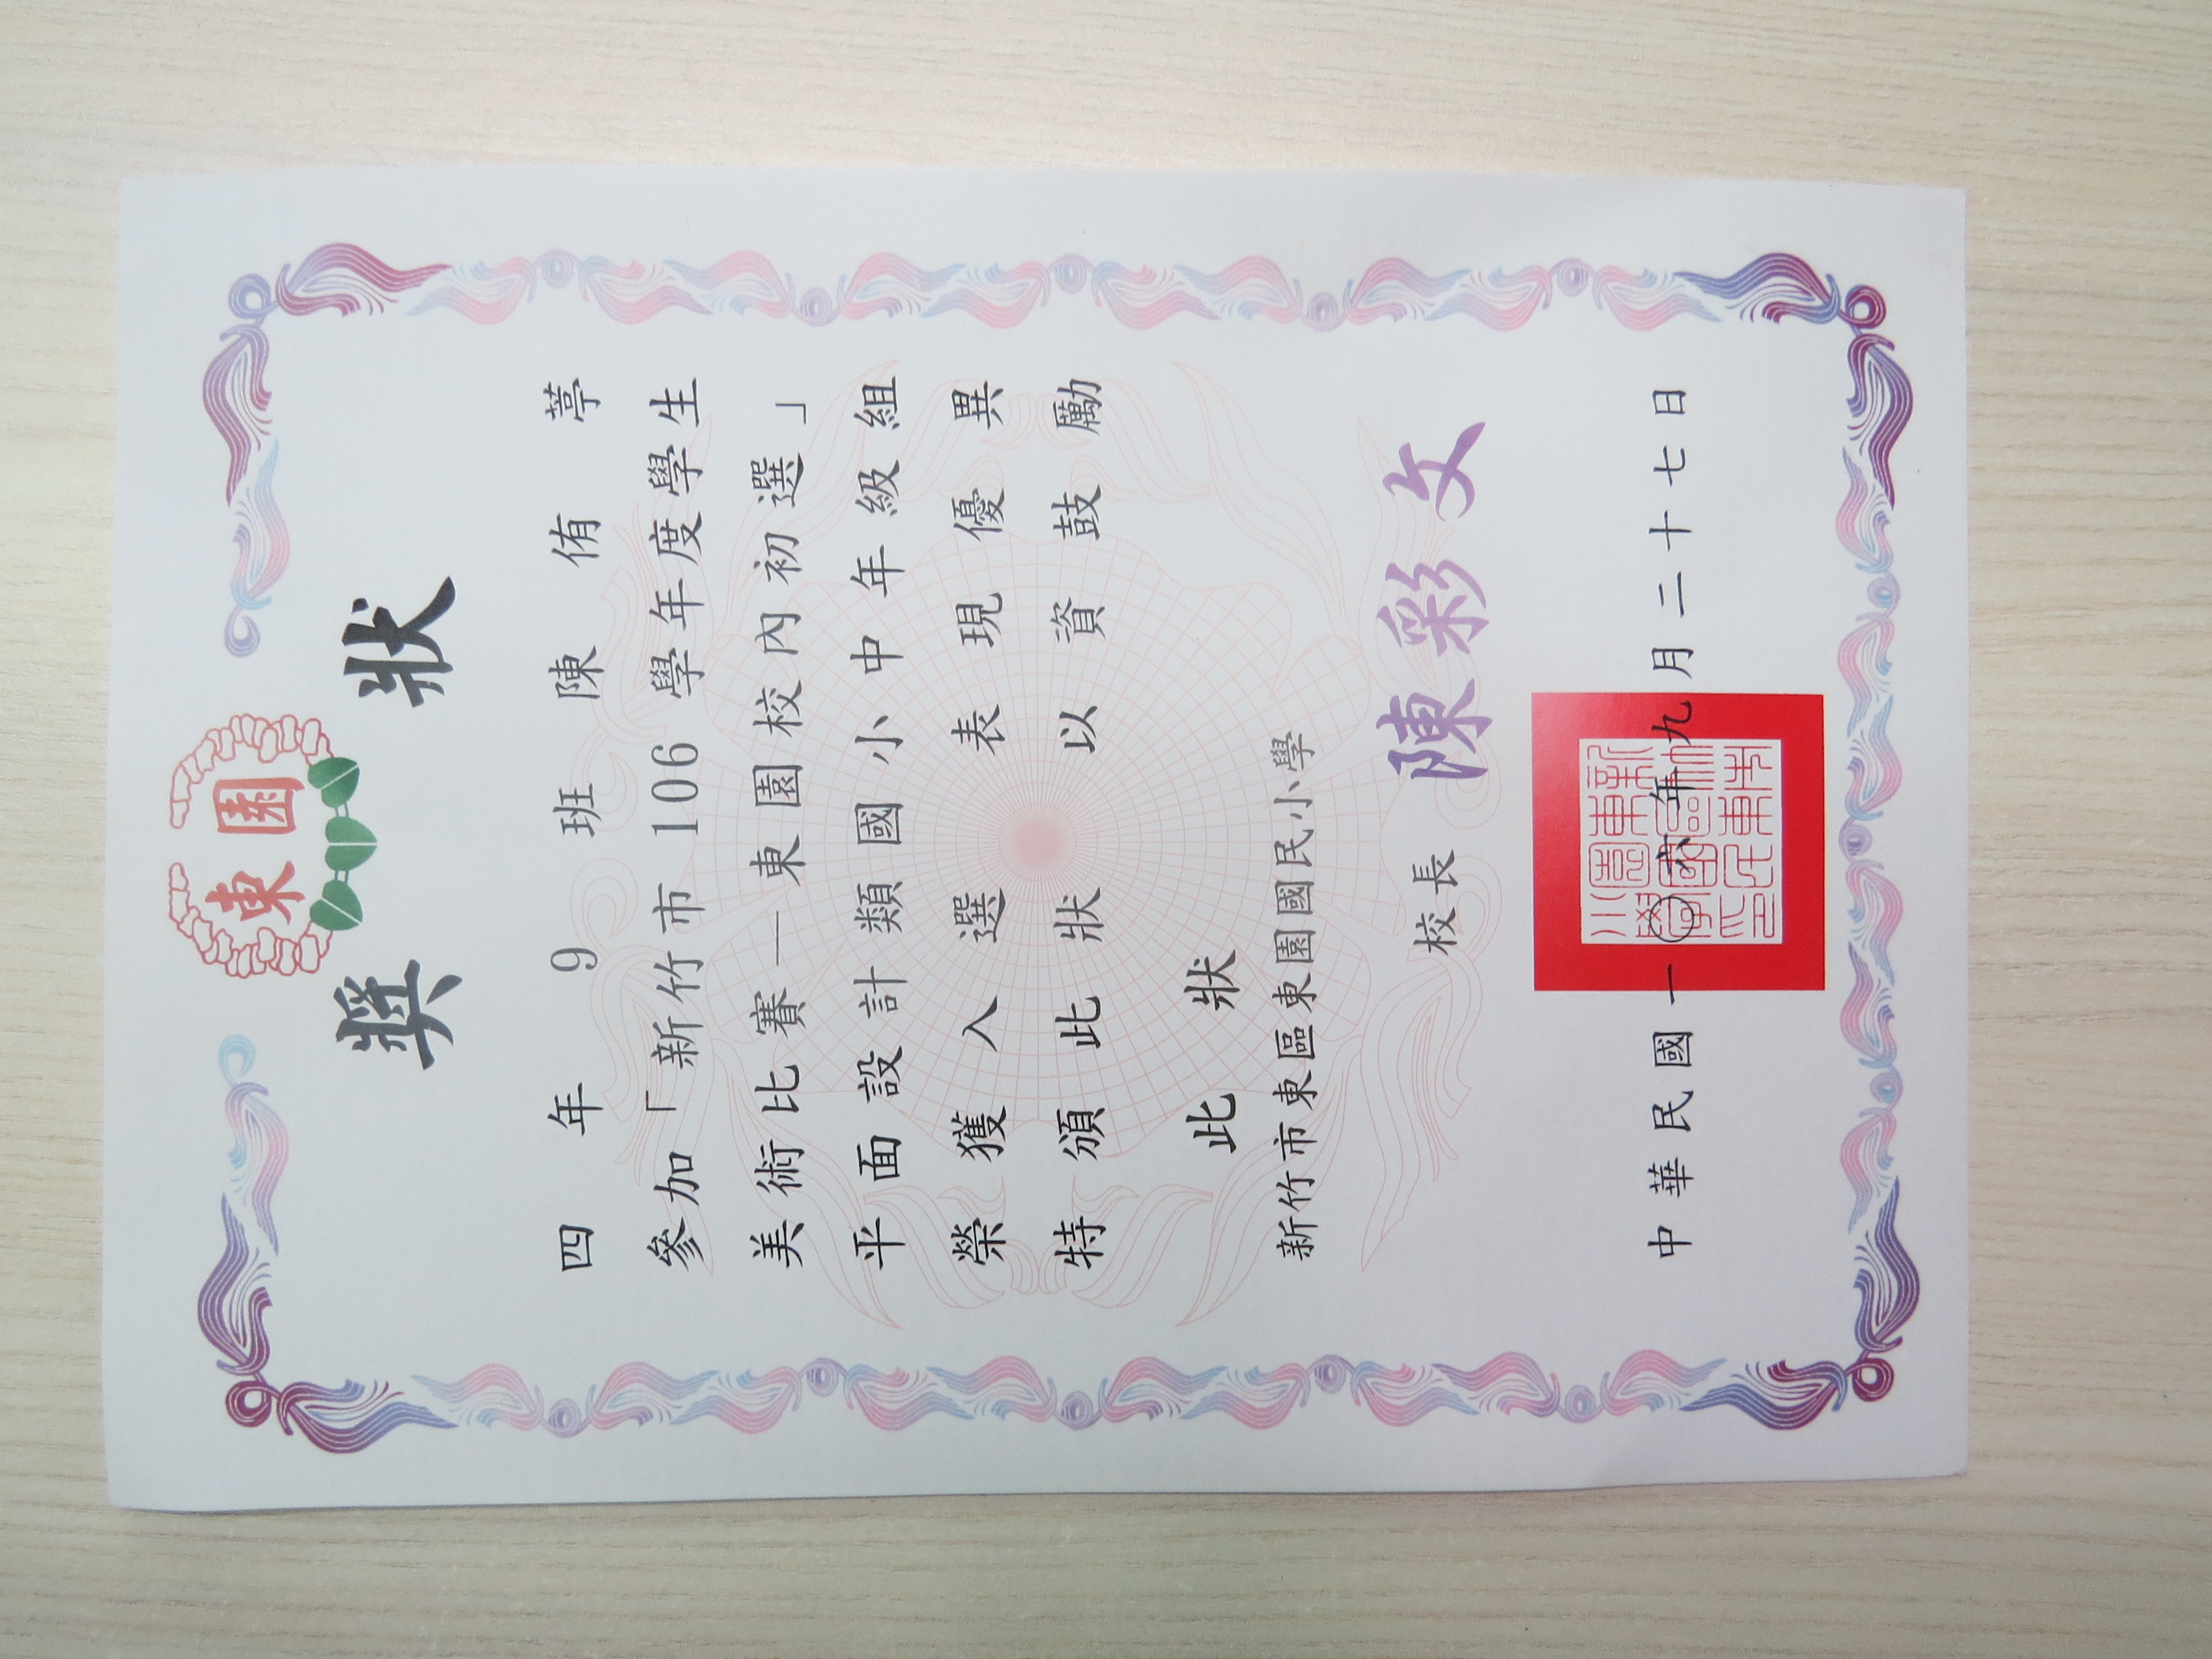 東園
獎狀
四年9班陳侑葶
參加「新竹市 106 學年度學生
美術比賽—東園校內初選」
平面設計類國小中年級組
榮獲入選 表現優異
特頒此狀 以資鼓勵
此狀
新竹市東區東園國民小學
校長 陳彩文
新竹市東區東園國民小學印
中華民國一〇六年九月二十七日